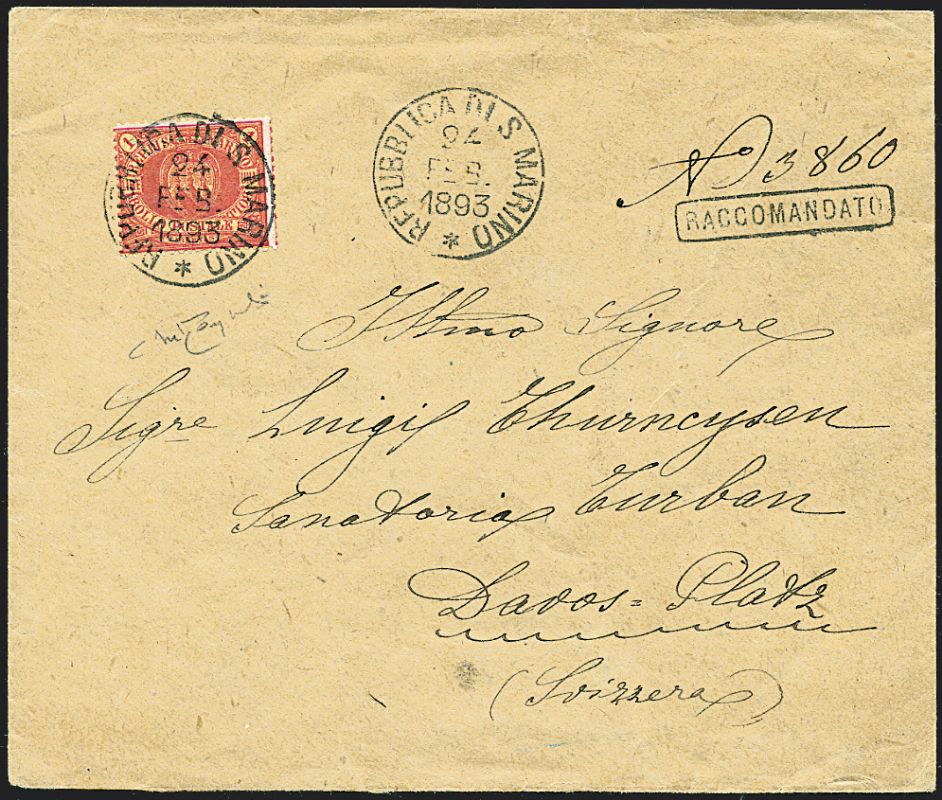 1 1
REPUBBLICA DI S. MARINO
24
FEB.
1893
*
REPUBBLICA DI S. MARINO
24
FEB.
1893
*
No 3860
RACCOMANDATO
Illmo Signore
Sigre Luigi Thurneysen
Sanatoria Turban
Davos=Platz
(Svizzera)